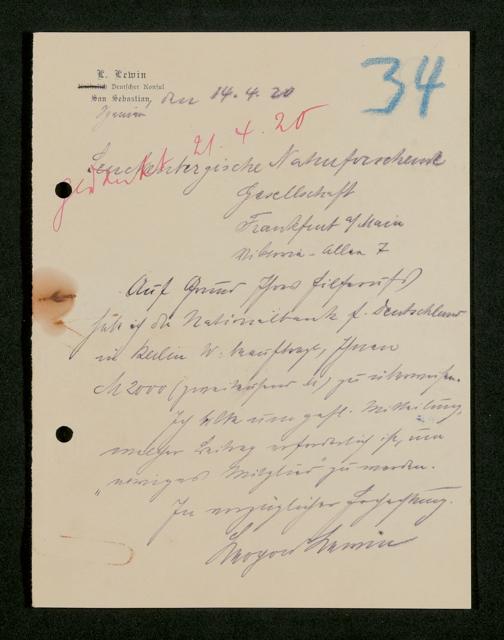 L. Lewin
Kaiserlich Deutscher Konsul
San Sebastian, den 14.4.20
Spanien
34
gedankt 21.4.20
Senckenbergische Naturforschende
Gesellschaft
Frankfurt a/Main
Viktoria-Allee 7
Auf Grund Ihres Hilferufs
habe ich die Nationalbank f. Deutschland
in Berlin W. beauftragt, Ihnen
M 2000 (zweitausend M) zu überweisen.
Ich bitte um gefl. Mitteilung,
welcher Beitrag erforderlich ist, um
"ewiges Mitglied" zu werden.
In vorzüglicher Hochachtung.
Leopold Lewin